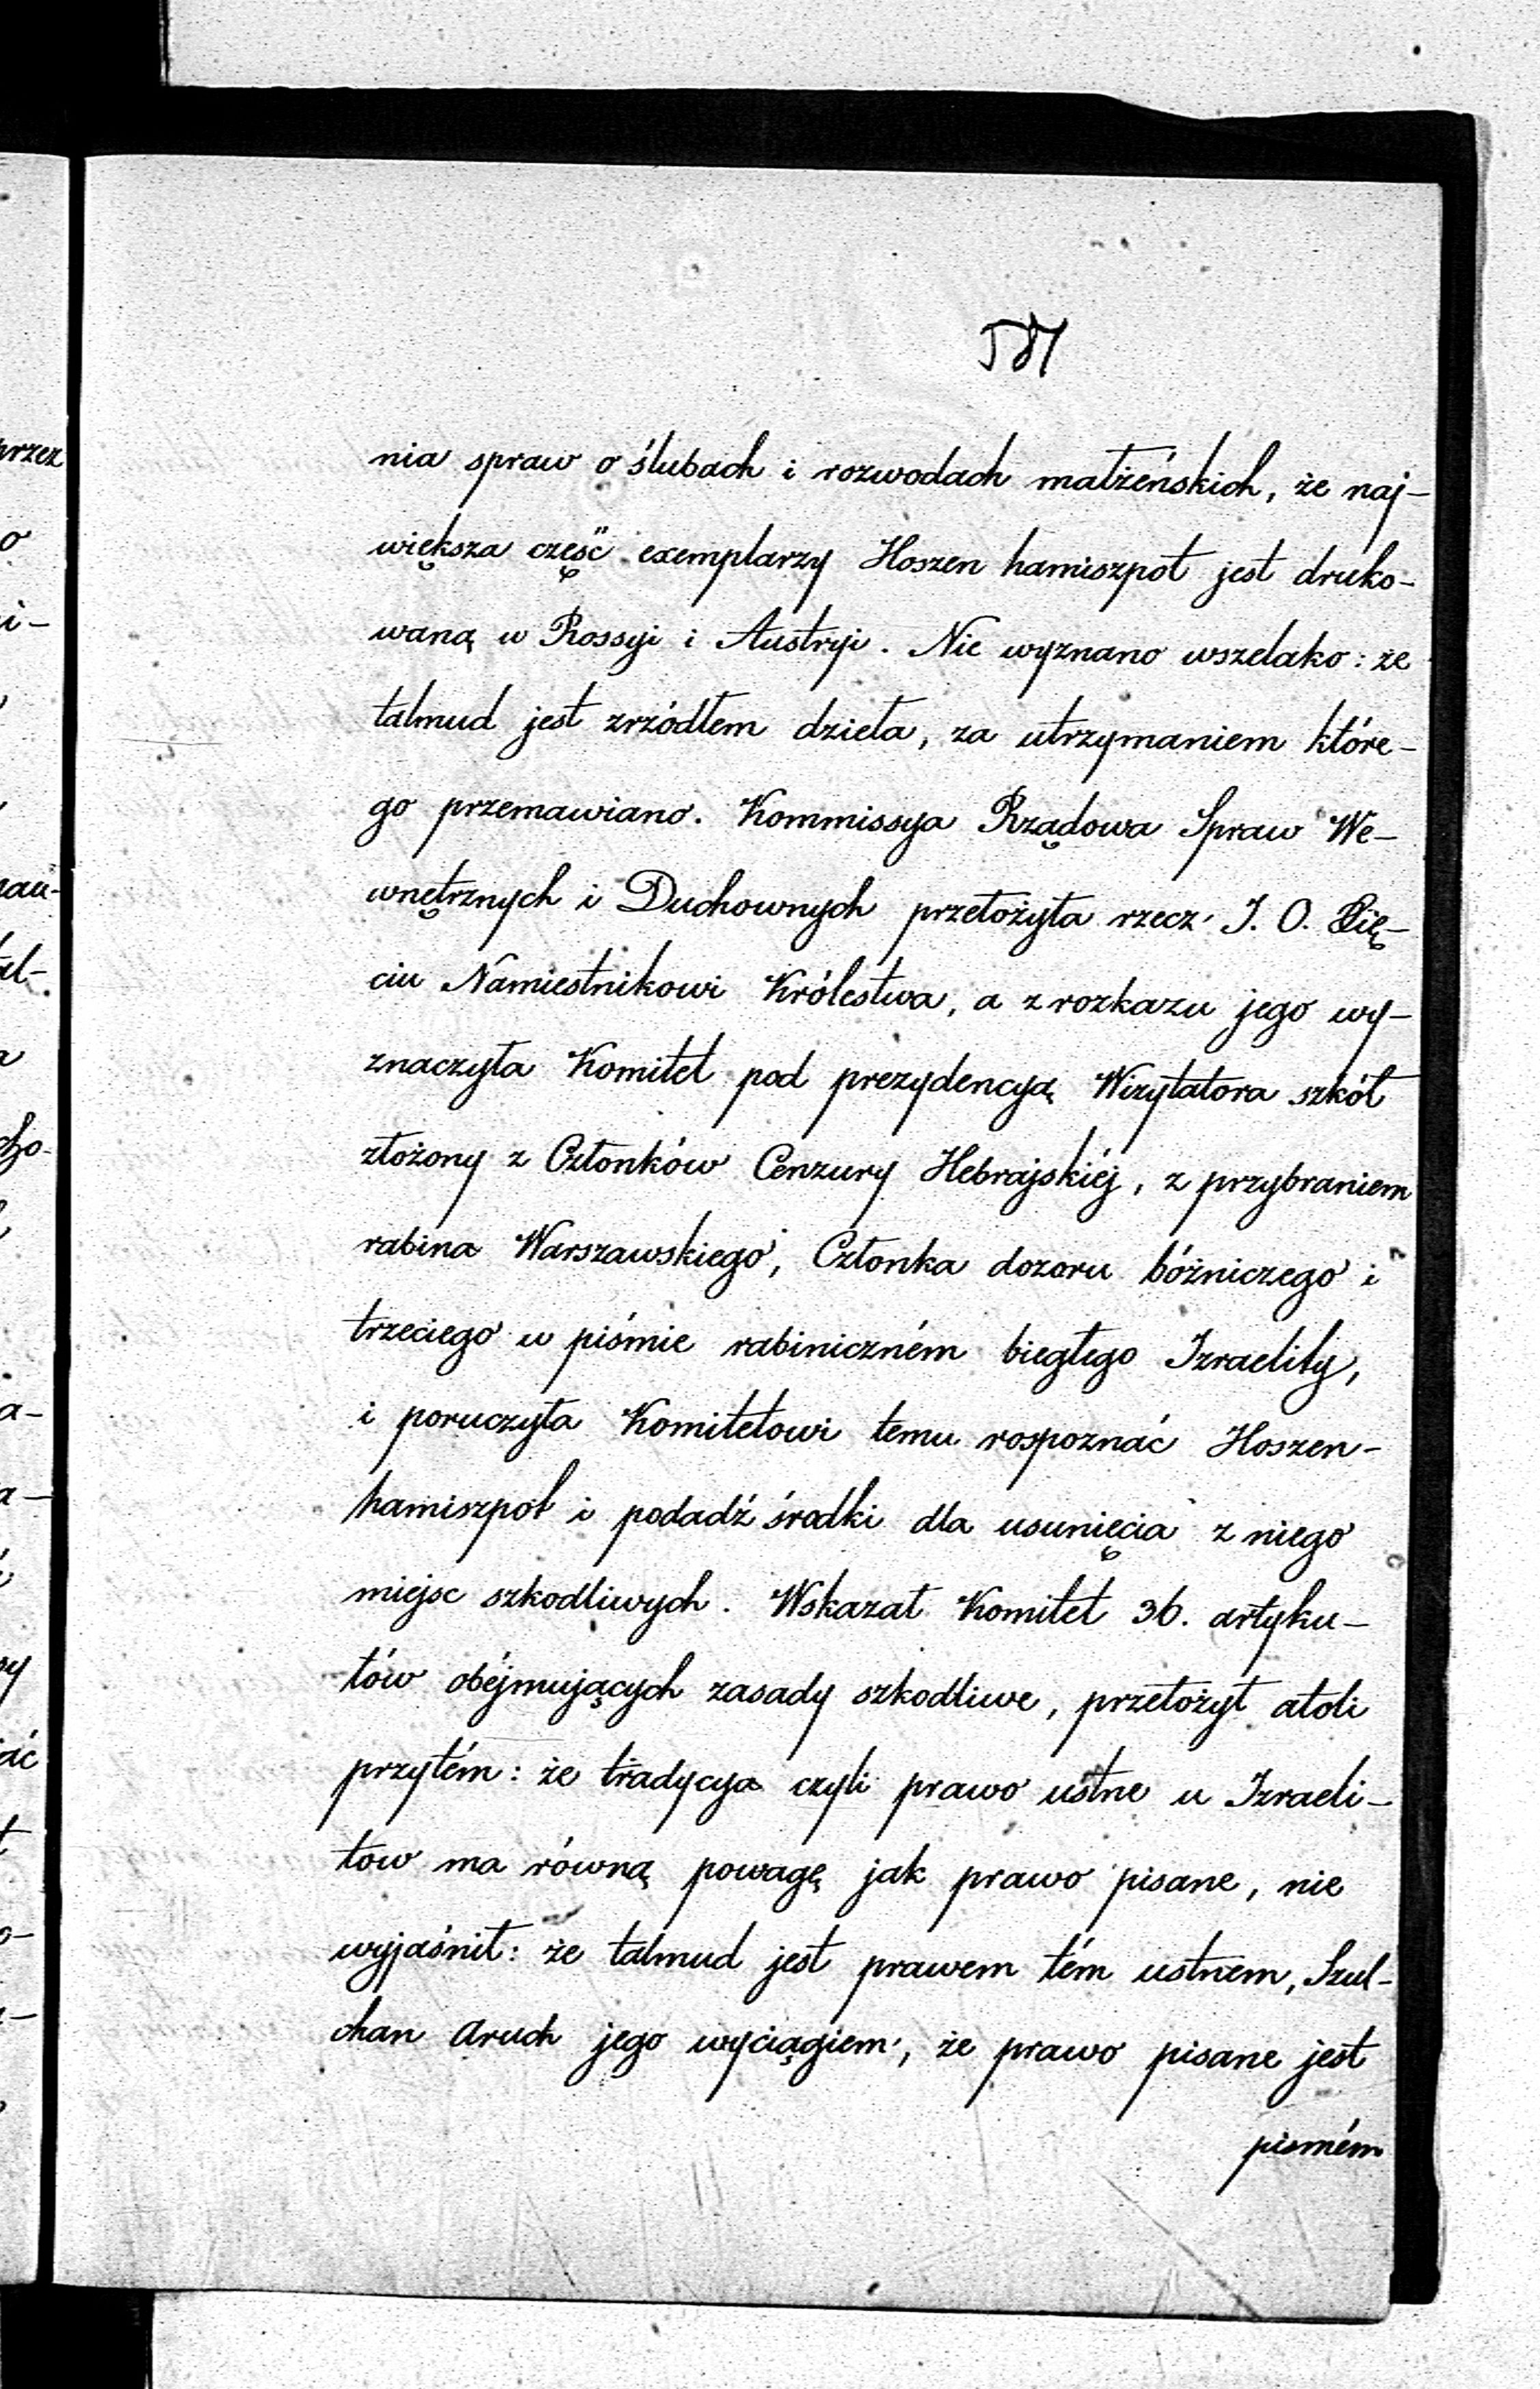 587
nia spraw o ślubach i rozwodach małżeńskich, że naj-
większa część exemplarzy Hoszen hamiszpot jest druko-
waną w Rossyi i Austryi. Nie wyznano wszelako: że
talmud jest zrzódłem dzieła, za utrzymaniem które-
go przemawiano. Kommissya Rządowa Spraw We-
wnętrznych i Duchownych przełożyła rzecz J. O. Xię-
ciu Namiestnikowi Królestwa, a z rozkazu jego wy-
znaczyła Komitet pod prezydencyą Wizytatora szkół
złożony z Członków Cenzury Hebrajskiéj, z przybraniem
rabina Warszawskiego, Członka dozoru bóżniczego i
trzeciego w piśmie rabiniczném biegłego Izraelity,
i poruczyła Komitetowi temu rospoznać Hoszen-
hamiszpot i podadź środki dla usunięcia z niego
miejsc szkodliwych. Wskazał Komitet 36. artyku-
łów obéjmujących zasady szkodliwe, przełożył atoli
przytém: że tradycya czyli prawo ustne u Izraeli-
tow ma równą powagę jak prawo pisane, nie
wyjaśnił: że talmud jest prawem tém ustnem, Szul-
chan Aruch jego wyciągiem, że prawo pisane jest
pismém
przez
o